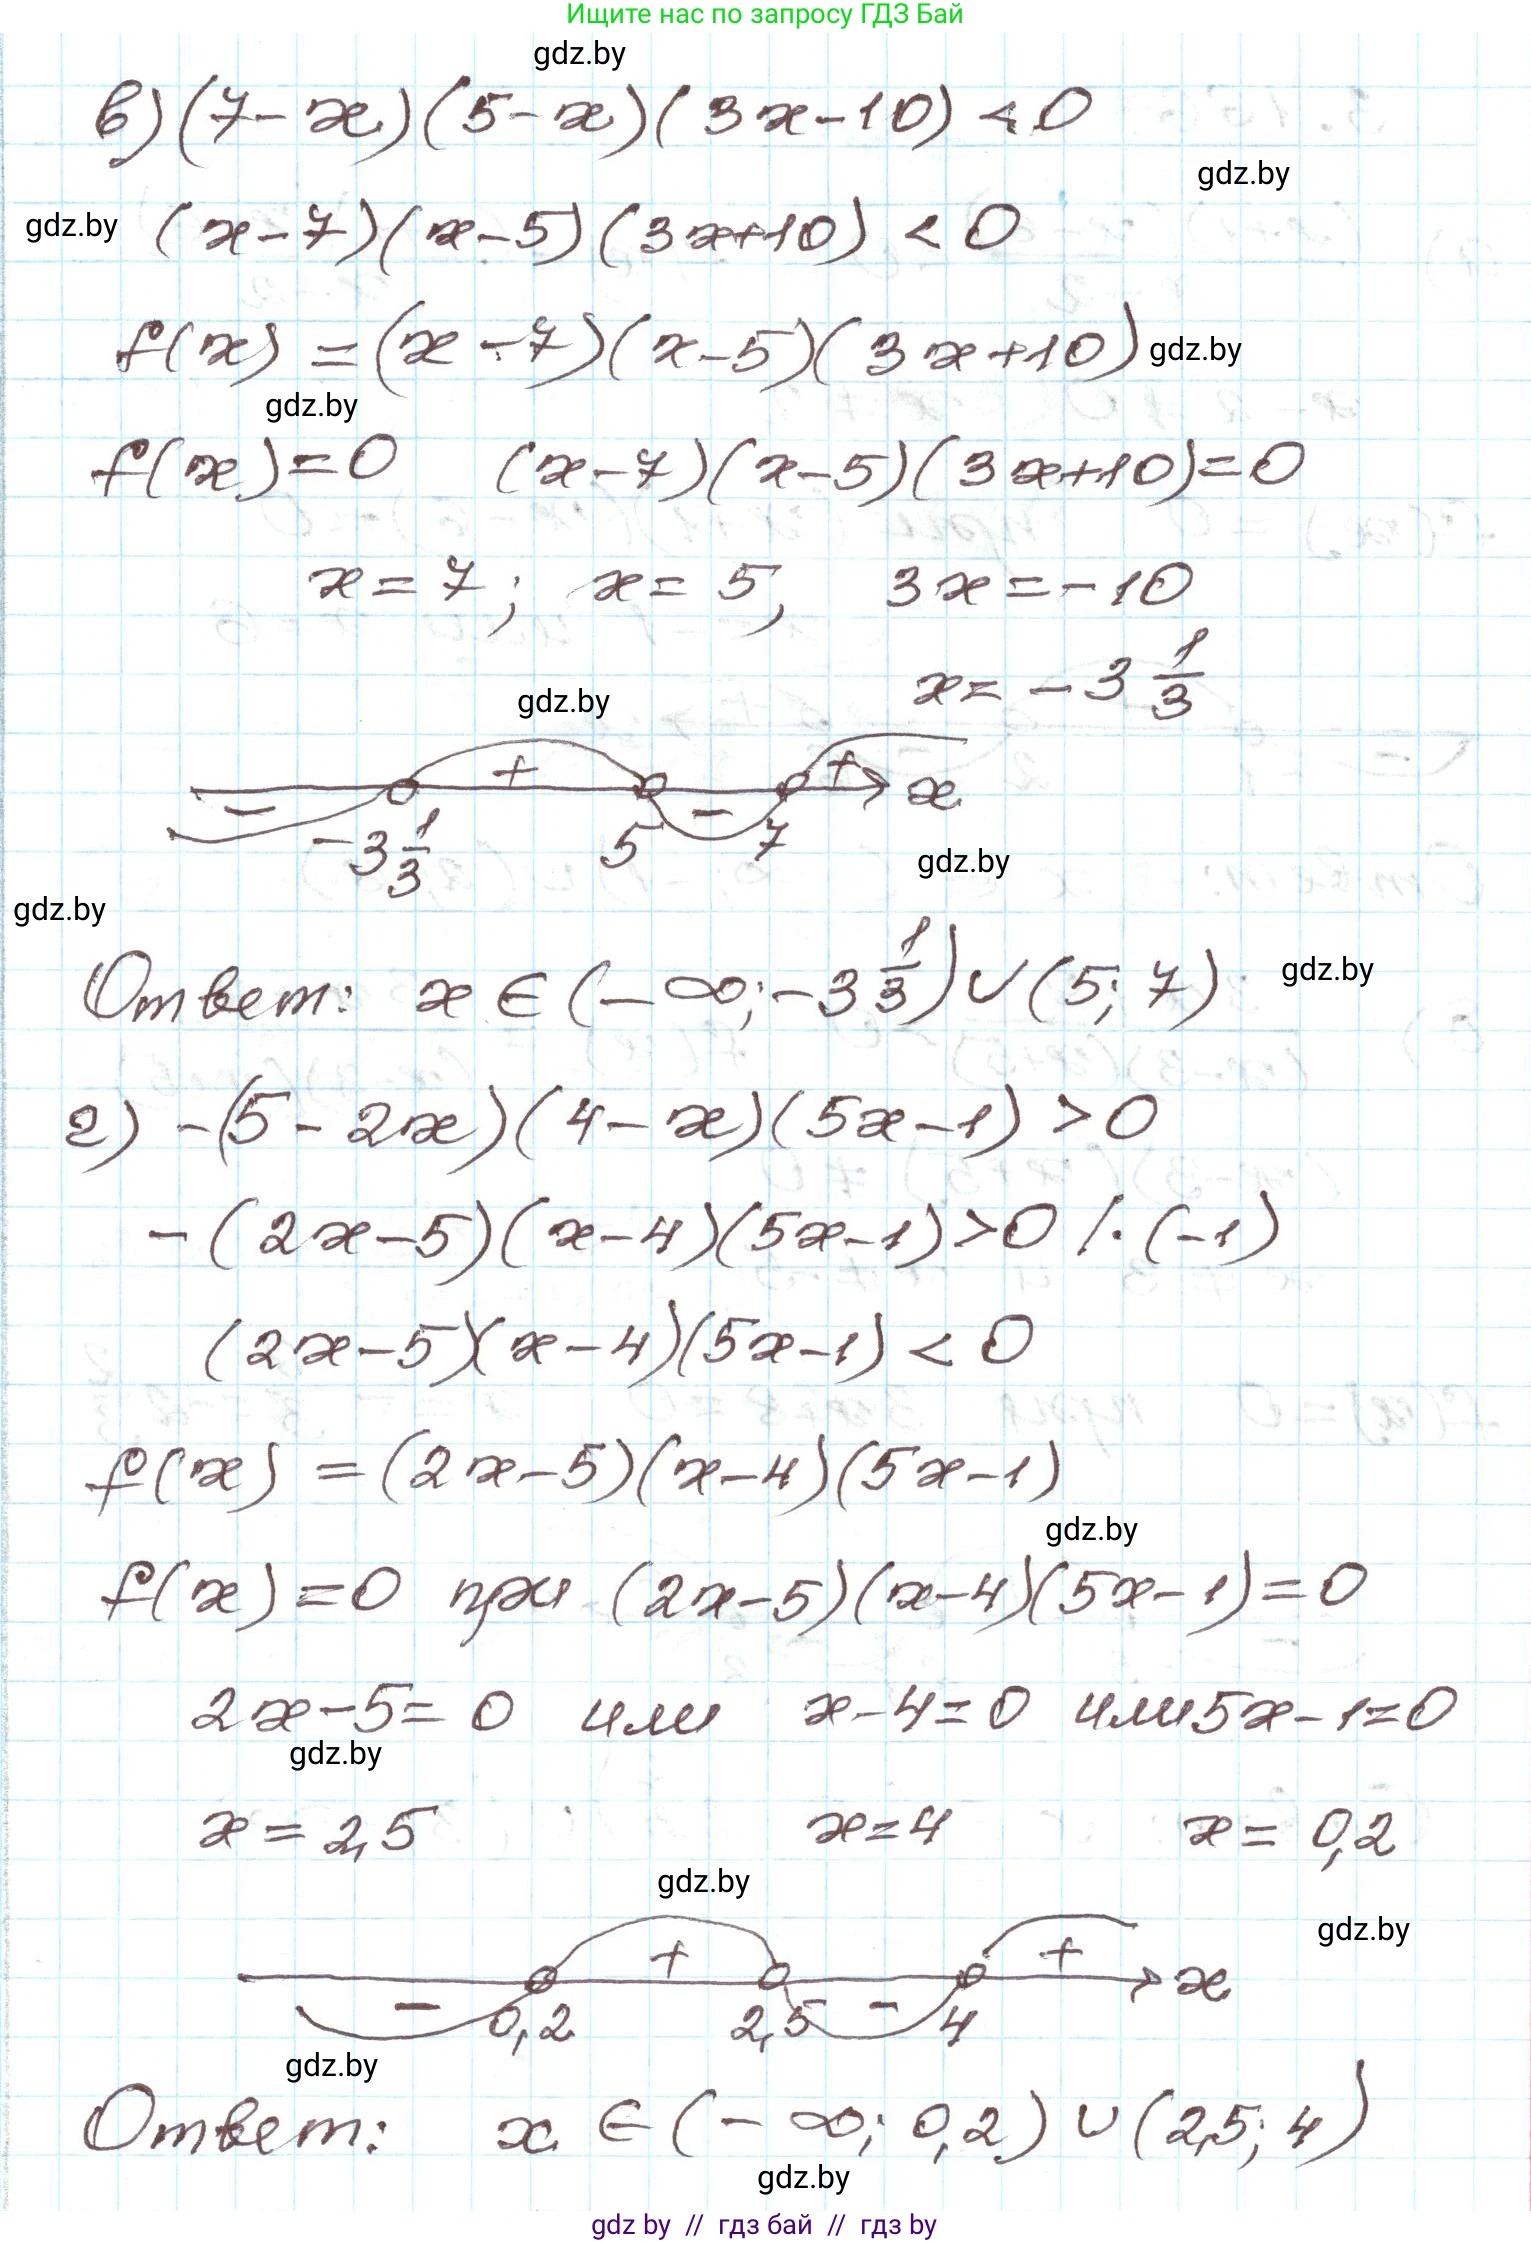 Ищите нас по запросу ГДЗ Бай
gdz.by
в) (7-x)(5-x)(3x-10) < 0
gdz.by
gdz.by
(x-7)(x-5)(3x+10) < 0
f(x) = (x-7)(x-5)(3x+10)
gdz.by
gdz.by
f(x)=0 (x-7)(x-5)(3x+10)=0
x=7; x=5, 3x=-10
x=-3 1/3
gdz.by
- + - + x
-3 1/3 5 7
gdz.by
gdz.by
Ответ: x ∈ (-∞; -3 1/3) ∪ (5; 7)
gdz.by
г) -(5-2x)(4-x)(5x-1) > 0
-(2x-5)(x-4)(5x-1) > 0 /·(-1)
(2x-5)(x-4)(5x-1) < 0
f(x) = (2x-5)(x-4)(5x-1)
gdz.by
f(x)=0 при (2x-5)(x-4)(5x-1)=0
2x-5=0 или x-4=0 или 5x-1=0
gdz.by
x=2,5 x=4 x=0,2
gdz.by
gdz.by
- + - + x
0,2 2,5 4
gdz.by
Ответ: x ∈ (-∞; 0,2) ∪ (2,5; 4)
gdz.by
gdz by // гдз бай // гдз by